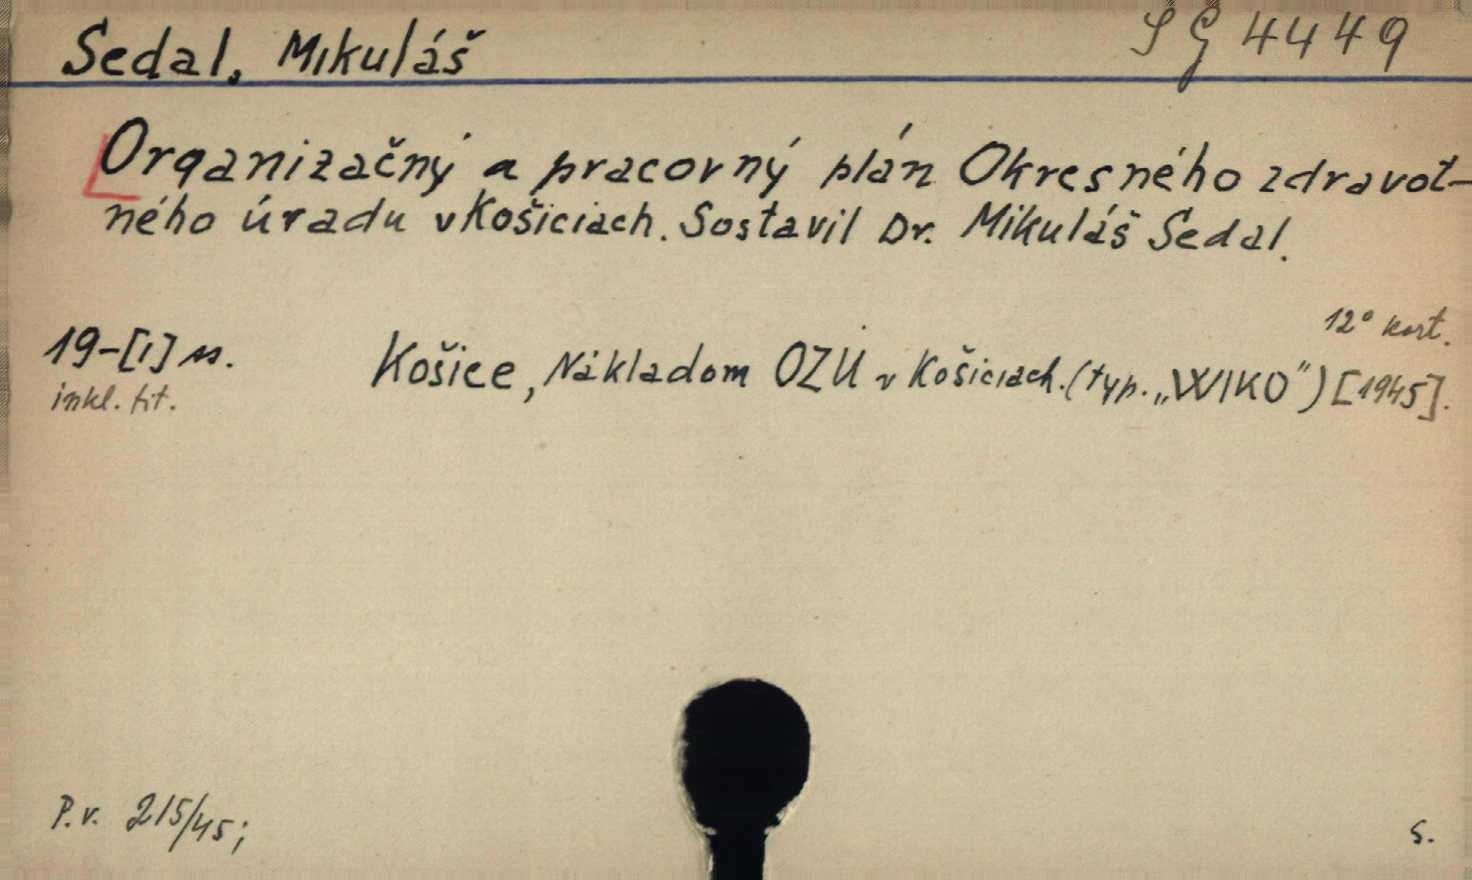 Sedal, Mikuláš
SG 4449
Organizačný a pracovný plán Okresného zdravot-
ného úradu v Košiciach. Sostavil Dr. Mikuláš Sedal.
12° kart.
19-[1] ss.
Košice, Nákladom OZU v Košiciach. (typ. „WIKO") [1945].
inkl. tit.
P.v. 215/45;
S.